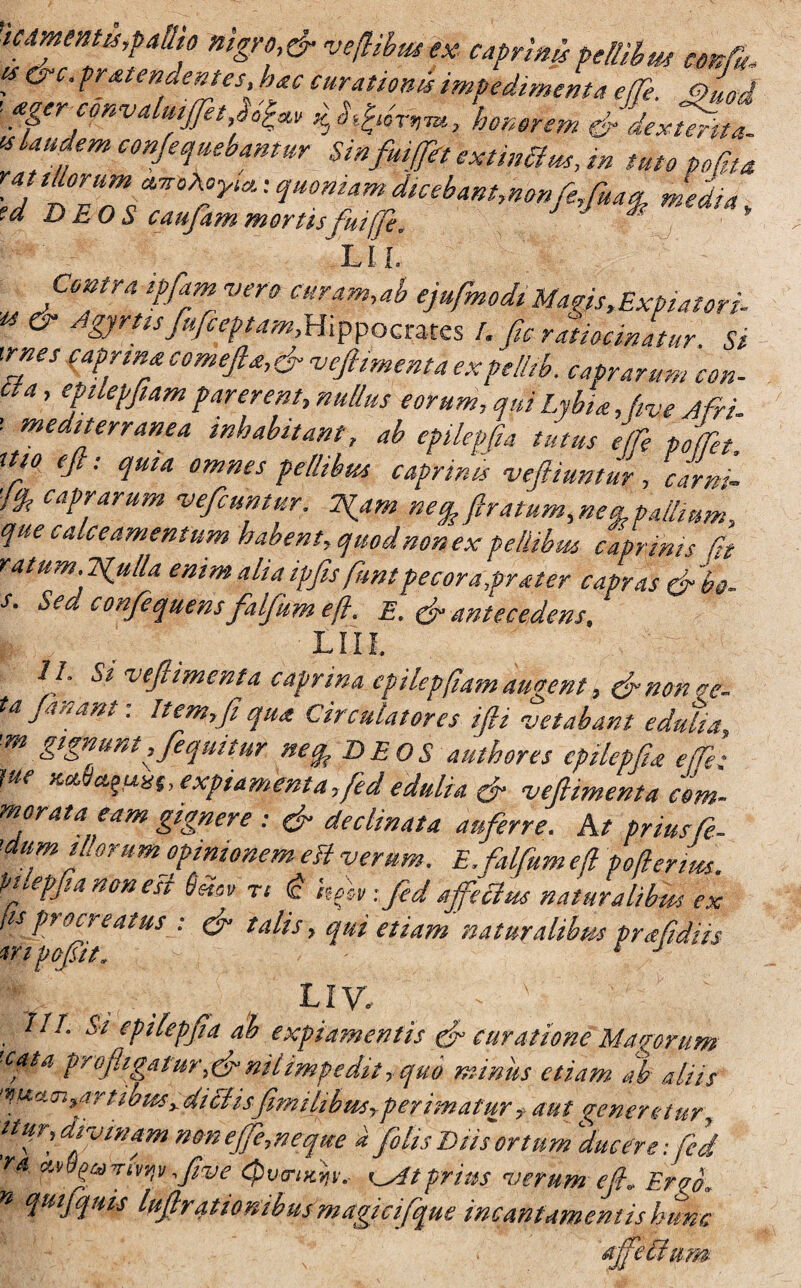 icamentis, pallio nigro, & vestibus ex caprinis pellibus confu-
is &c. prætendentes, hæc curationis impedimenta esse. Quod
æger convaluisset, δόξαν ϗ δεξιότητα, honorem & dexterita-
is laudem consequebantur Sin fuisset extinctus, in tuto posita
rat illorum ἀπολογία: quoniam dicebant, non se, suaq; media,
ed DEOS causam mortis fuisse.
LII.
Contra ipsam vero curam, ab ejusmodi Magis, Expiatori-
us & Agyrtis susceptam, Hippocrates I. sic ratiocinatur. Si
irnes caprinæ comestæ, & vestimenta ex pellib. caprarum con-
cta, epilepsiam parerent, nullus eorum, qui Lybiæ, sive Afri-
mediterranea inhabitant, ab epilepsia tutus esse posset.
itio est: quia omnes pellibus caprinis vestiuntur, carni-
sq; caprarum vescuntur. Nam neq; stratum, neq; pallium,
que calceamentum habent, quod non ex pellibus caprinis sit
ratum. Nulla enim alia ipsis sunt pecora, præter capras & bo-
s. Sed consequens falsum est. E. & antecedens.
LIII.
II. Si vestimenta caprina epilepsiam augent, & non ge-
ta sanant: Item, si quæ Circulatores isti vetabant edulia,
im gignunt, sequitur neq; DEOS authores epilepsiæ esse:
que καθαρμὰς, expiamenta, sed edulia & vestimenta com-
morata eam gignere: & declinata auferre. At prius se-
idum illorum opinionem est verum. E. falsum est posterius.
pilepsia non est θεῖον τι & ἱερὸν: sed affectus naturalibus ex
sis procreatus: & talis, qui etiam naturalibus præsidiis
ari possit.
LIV.
III. Si epilepsia ab expiamentis & curatione Magorum
icata profligatur, & nil impedit, quo minus etiam ab aliis
artibus, dictis similibus, perimatur, aut generetur,
itur, divinam non esse, neque à solis Diis ortum ducere: sed
ra ἀνθρωπίνην, sive φυσικήν. At prius verum est. Ergò.
n quisquis lustrationibus magicisque incantamentis hunc
affectum